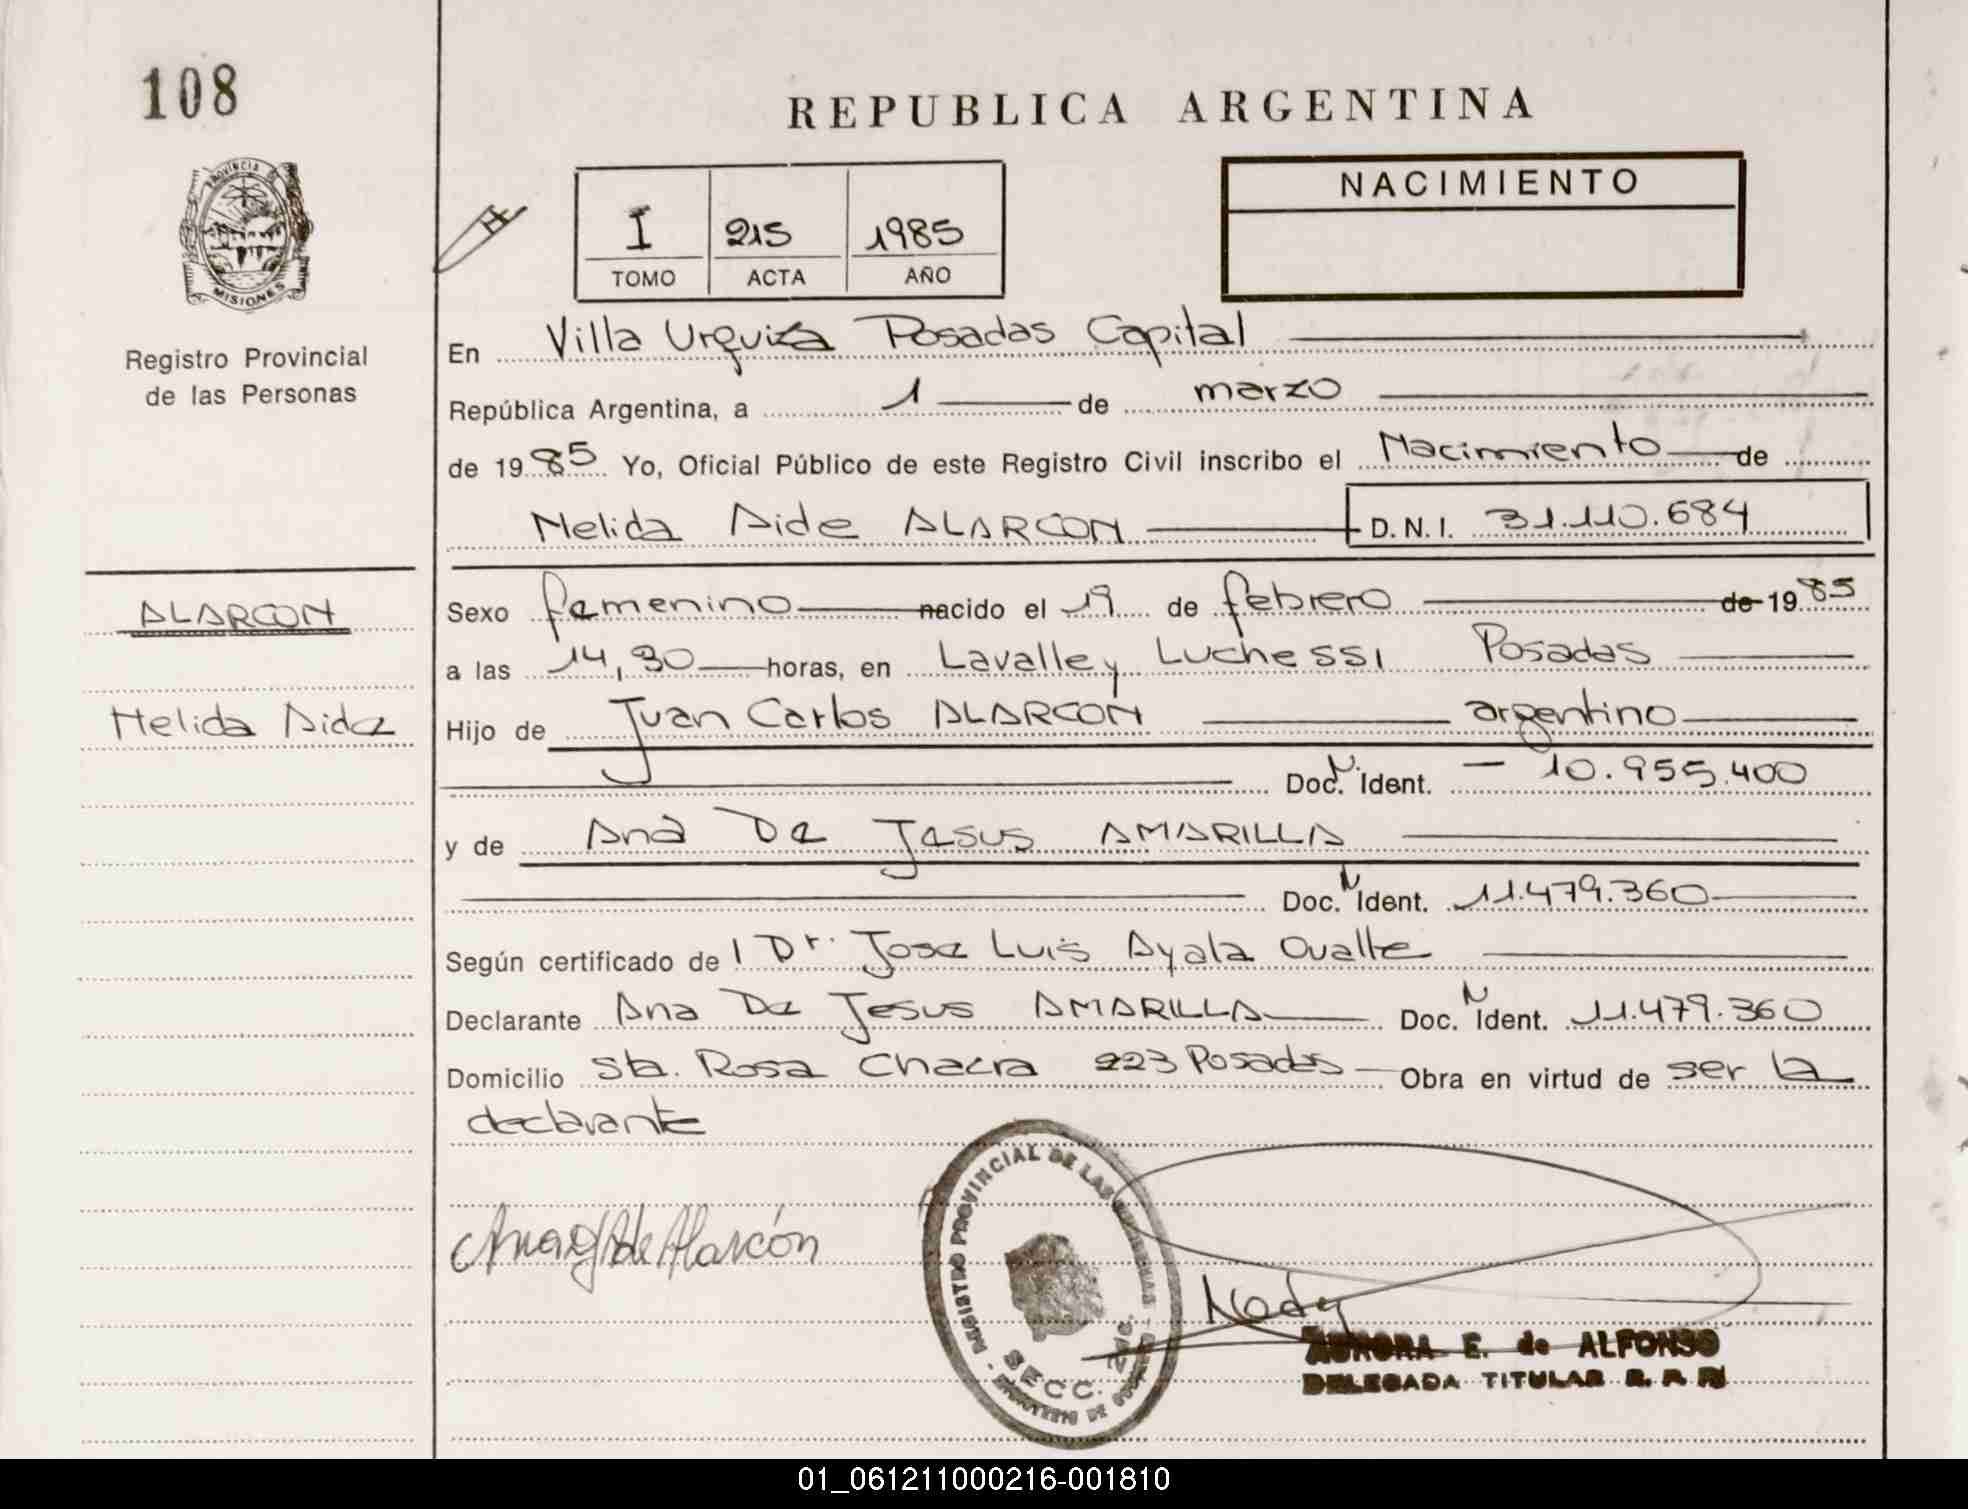 108
REPUBLICA ARGENTINA
PROVINCIA DE
MISIONES
NACIMIENTO
I 215 1985
TOMO ACTA AÑO
Registro Provincial
de las Personas
En Villa Urquiza Posadas Capital
República Argentina, a 1 de marzo
de 1985 Yo, Oficial Público de este Registro Civil inscribo el Nacimiento de
Nelida Aide ALARCON D.N.I. 31.110.684
ALARCON
Nelida Aide
Sexo femenino nacido el 19 de febrero de 1985
a las 14,30 horas, en Lavalle y Luchessi Posadas
Hijo de Juan Carlos ALARCON argentino
Doc. N Ident. - 10.955.400
y de Ana De Jesus AMARILLA
Doc. N Ident. 11.479.360
Según certificado de l Dr. Jose Luis Ayala Ovalle
Declarante Ana De Jesus AMARILLA Doc. N Ident. 11.479.360
Domicilio Sta. Rosa Chacra 223 Posadas Obra en virtud de ser la
declarante
de Alarcón
REGISTRO PROVINCIAL DE LAS PERSONAS
SECC. 2da.
MINISTERIO DE GOBIERNO
AURORA E. de ALFONSO
DELEGADA TITULAR R. P. P.
01_061211000216-001810